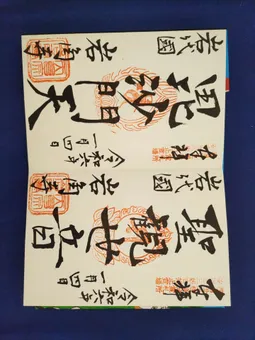 奉拝
岩代國
毘沙門天
岩角寺
令和六年
一月四日
奉拝
岩代國
聖観世音
岩角寺
令和六年
一月四日